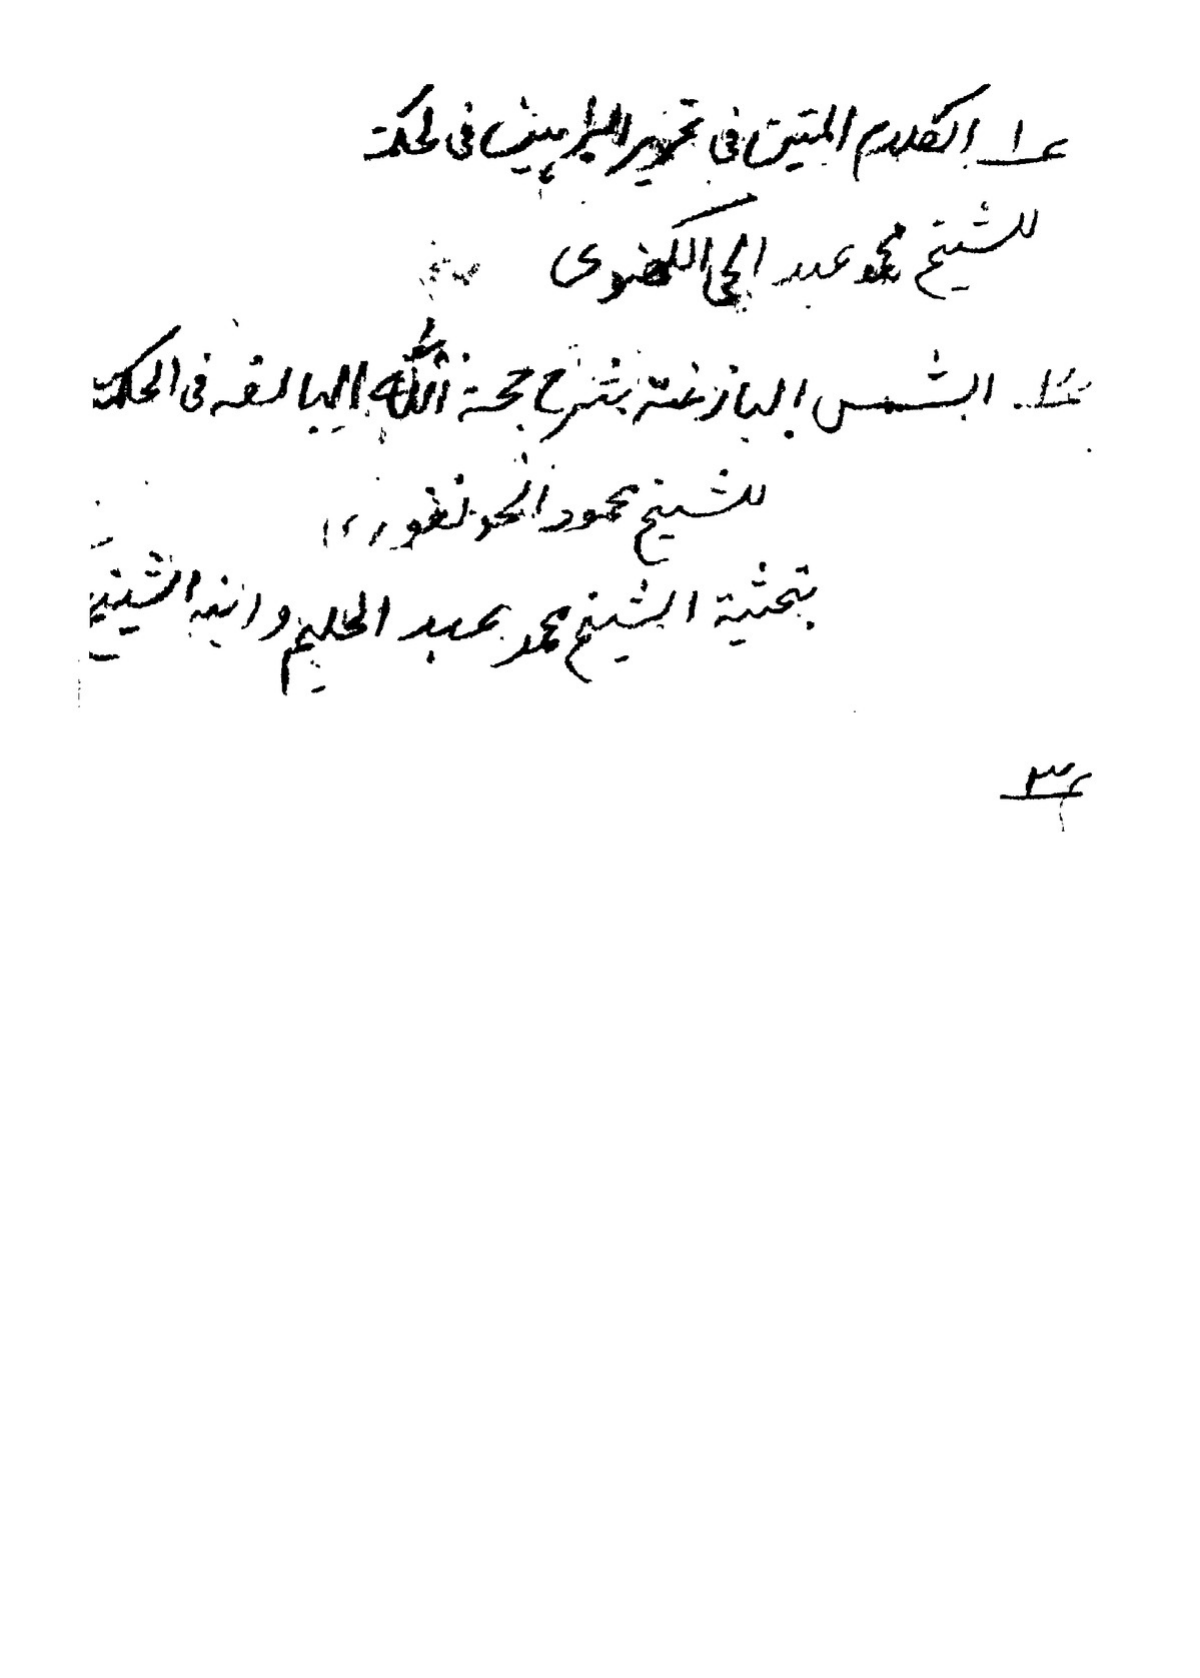 ١ الكلام المتين فى تحرير البراهين فى الحكمة
للشيخ محمد عبد الحى اللكهنوى
٢ الشمس البازغة بشرح حجة الله البالغه فى الحكمة
للشيخ محمود الجونفورى
بتحشية الشيخ محمد عبد الحليم وابنه الشيخ
٣